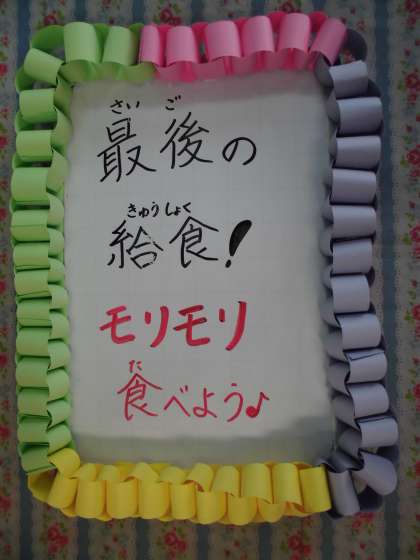 さいご
最後の
きゅうしょく
給食!
モリモリ
た
食べよう♪